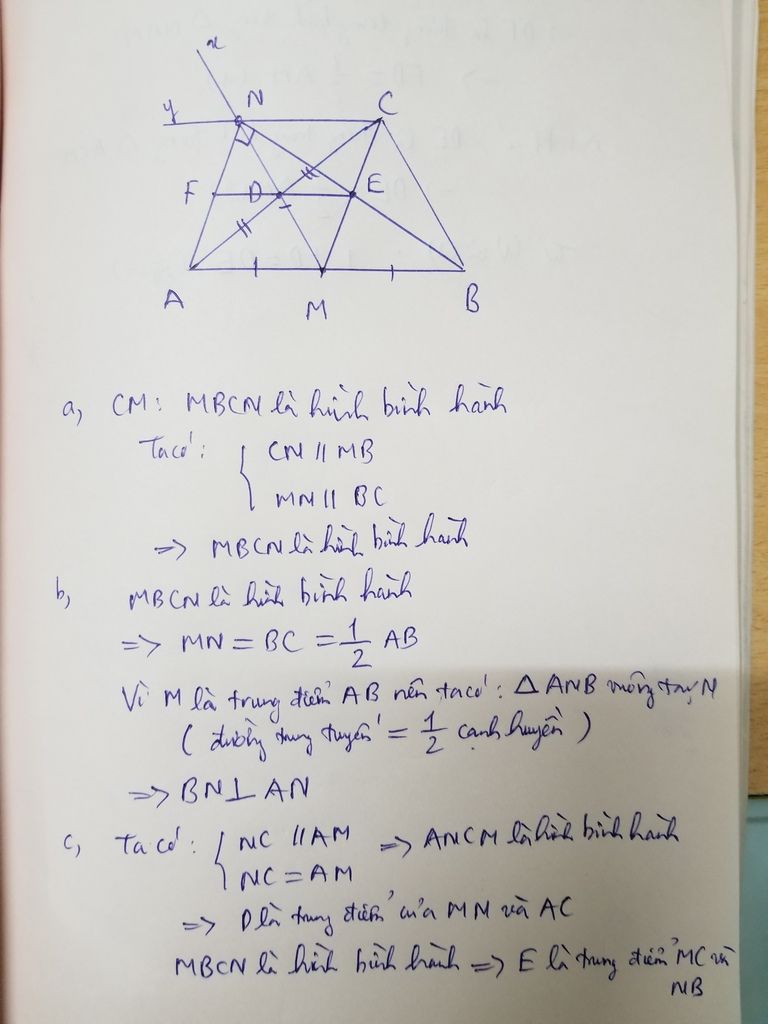 x
y
N
C
F
D
E
A
M
B
a, CM: MBCN là hình bình hành
Ta có: { CN // MB
MN // BC
=> MBCN là hình bình hành
b, MBCN là hình bình hành
=> MN = BC = 1/2 AB
Vì M là trung điểm AB nên ta có: △ANB vuông tại N
( đường trung tuyến = 1/2 cạnh huyền )
=> BN ⊥ AN
c, Ta có: { NC // AM => ANCM là hình bình hành
NC = AM
=> D là trung điểm của MN và AC
MBCN là hình bình hành => E là trung điểm MC và
NB